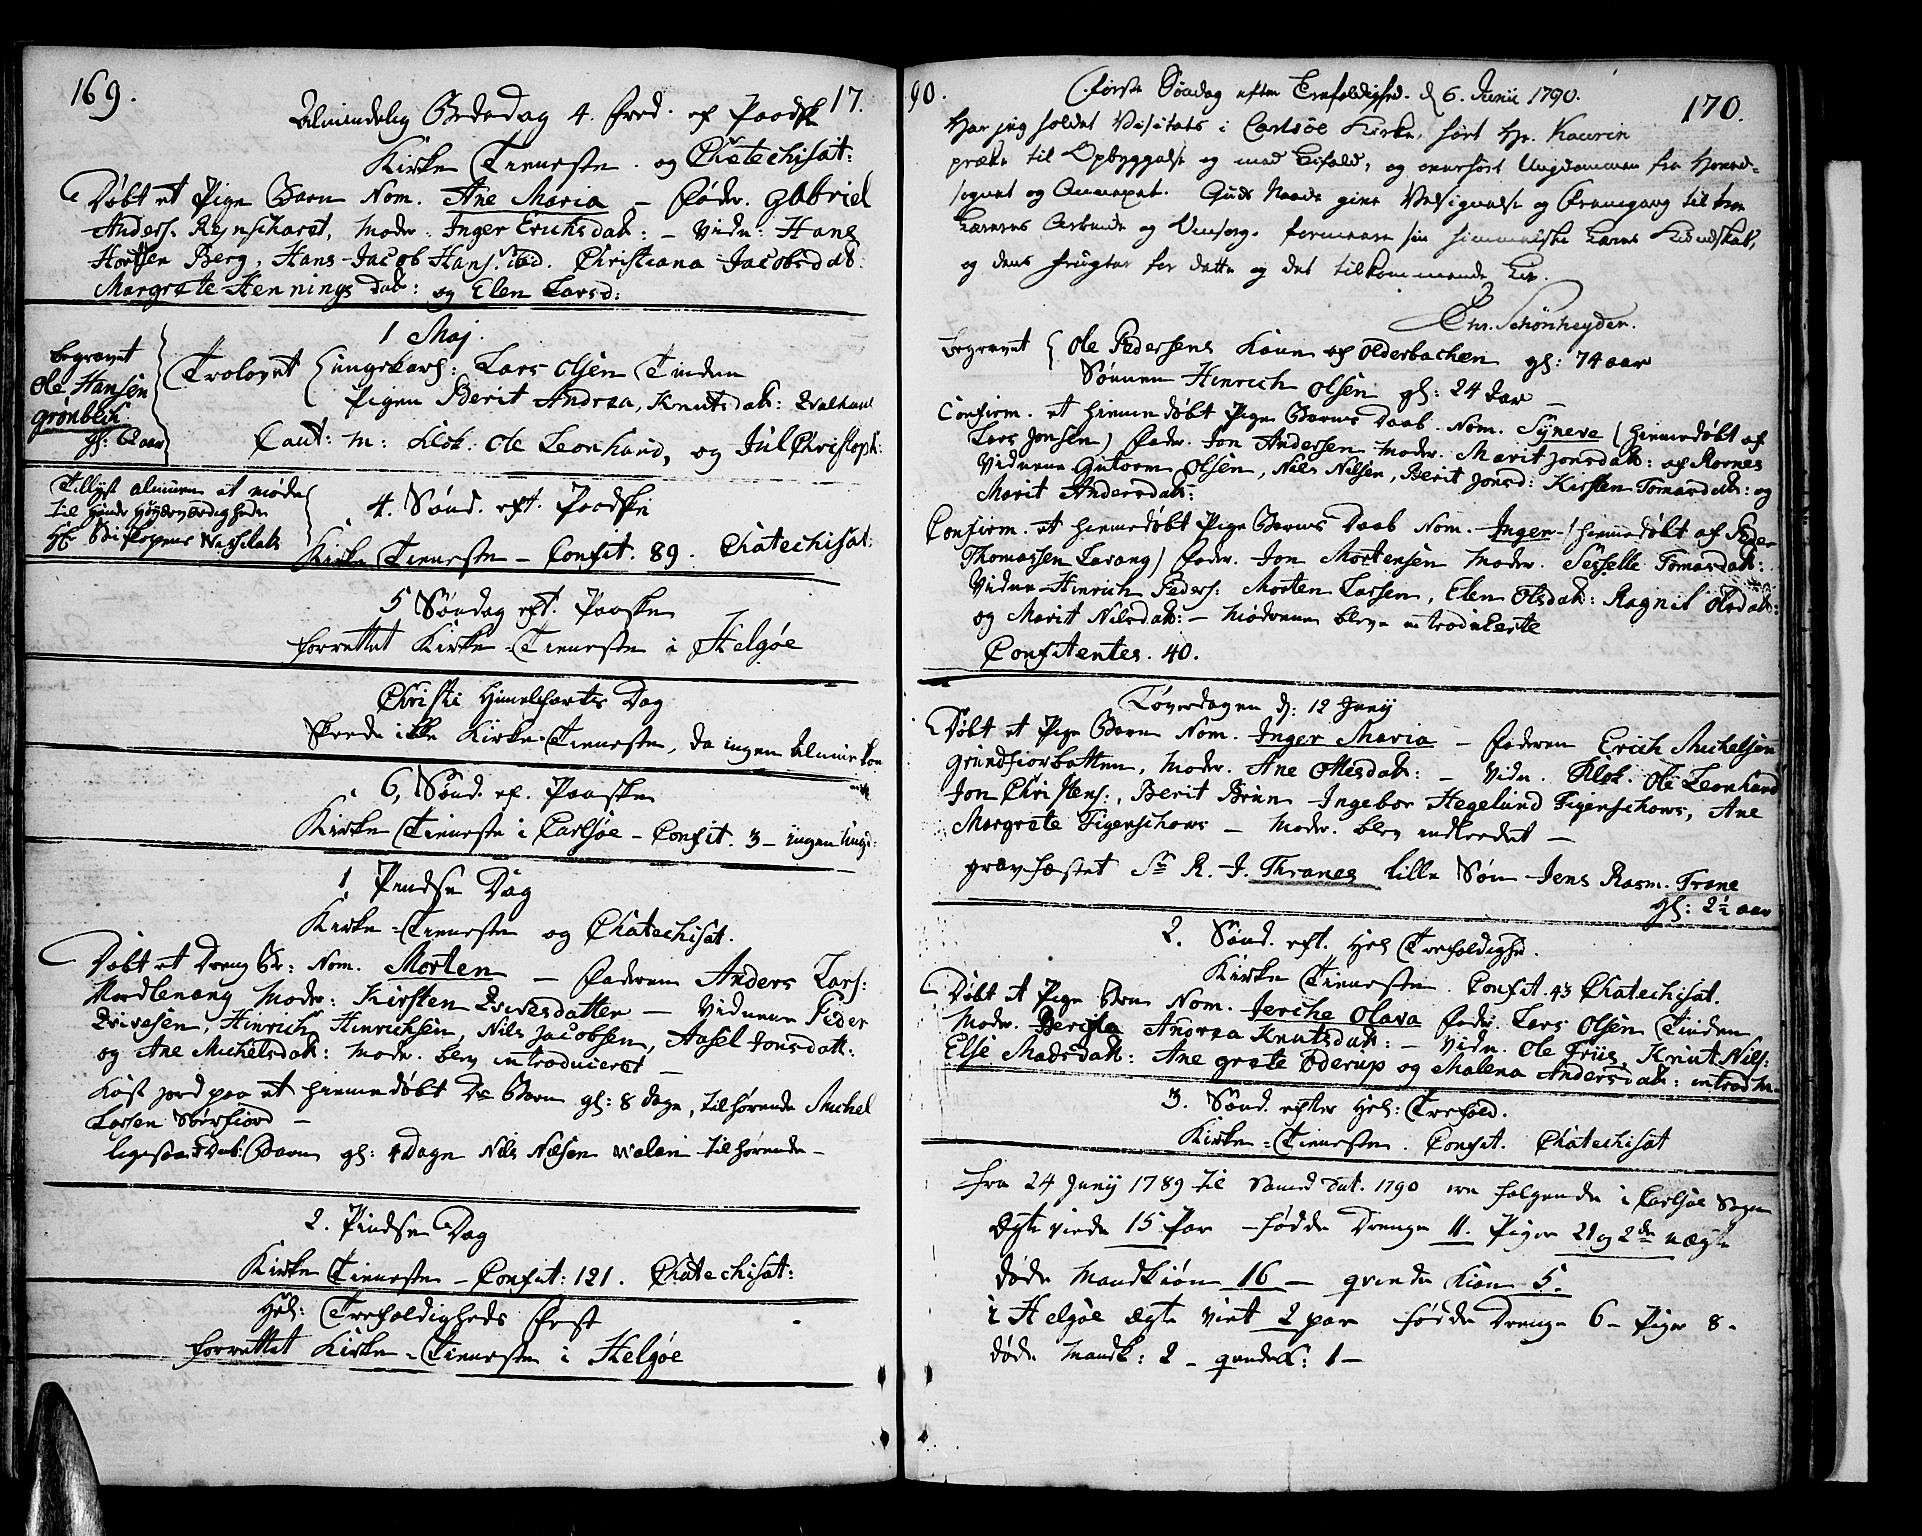 169.
17.
Almindelig Bededag 4. Fred. eft Paaske
Kirke Tieneste. og Chatechisat:
Døbt et Pige Barn Nom. Ane Maria – Fader. Gabriel
Anders. Reinschart, Moder. Inger Erichsdat: – Vidn: Hans
Hortsen Berg, Hans Jacob Hans. Christiana Jacobsdat:
Margrete Hennings Dat: og Elen Larsd:
1 Maj.
Begravet
Ole Hansen
grønbech
gl: 62 aar
Trolovet Ungekarl: Lars Olsen Tinden
Pigen Berit Andrea Knutsdat:
Caut: M: Klok. Ole Leonhard, og Jul Christoph:
Tillyst almuen at møde
til Hands Høyærværdigheds
Hr Biskopens Visitats
4. Sønd. eft. Paaske
Kirke Tieneste – Confit. 89. Chatechisat:
5 Søndag eft. Paaske
forrettet Kirke-Tieneste i Helgøe
Christi Himelfarts Dag
Skeede ikke Kirke-Tieneste, da ingen Almue kom
6, Sønd. ef. Paaske
Kirke Tieneste i Carlsøe – Confit. 3 – ingen ungd:
1. Pindse Dag
Kirke-Tieneste og Chatechisat.
Døbt et Dreng Br: Nom. Morten – Faderen Anders Lars:
Nordlenang Moder: Kirsten Iversdatter – Vidnerne Peder
Iversen, Hinrich Hinrichsen, Nils Jacobsen, Aasel Jonsdat:
og Ane Michelsdat: Moder. blev introduceret –
Kast jord paa et hiemedøbt Barn gl: 8 dage, tilhørende Michel
Larsen Sørfiord –
ligesaa Barn gl: 4 Dage Nils Nilsen Walen tilhørende –
2. Pindse Dag
Kirke Tieneste – Confit: 121. Chatechisat:
Hel: Trefoldigheds Fest
forrettet Kirke-Tieneste i Helgøe
90.
170.
Første Søndag efter Trefoldighed. d 6. Junii 1790.
Har jeg holdet Visitats i Carlsøe Kirke, hørt Hr. Kaurin
præke til Opbyggelse og med Bifald, og overhørt Ungdommen fra Hoved-
sognet og Annexet. Guds Naade give Velsignelse og Fremgang til
Læreres Arbeide og Omsorg. formeere sin himmelske Læres Kundskab,
og dens frugter for dette og det tilkommende Liv.
Chr. Schønheyder.
Begravet Ole Pedersens Kone af Olderbachen gl: 74 aar
Sønnen Hinrich Olsen gl: 24 aar –
Confirm. et hiemedøbt Pige Barns Daab. Nom. Syneve (hiemedøbt af
Lars Jonsen) Fader. Jon Andersen Moder. Marit Jonsdat: af Rornes
Vidnerne Gutorm Olsen, Nils Nilsen, Berit Jonsd: Kirsten Tomasdat: og
Marit Andersdat:
Confirm. et hiemedøbt Pige Barns Daab Nom. Inger (hiemedøbt af Peder
Thomassen Lavang) Fader. Jon Mortensen Moder. Sesselle Tomasdat:
Vidne Hinrich Peders: Morten Larsen, Elen Olsdat: Ragnil Olsdat:
og Marit Nilsdat: – Mødrene bleve introducerte
Confitentes. 40.
Løverdagen d: 12 Junij
Døbt et Pige Barn Nom. Inger Maria – Faderen Erich Michelsen
grundfiorbotten, Moder. Ane Ottesdat: – Vidn. Klok. Ole Leonhard
Jon Christens:, Berit Brun Ingebor Hegelund Figenschows, Ane
Margrete Figenschows – Moder. blev indleedet –
gravfæstet Sr R. J. Thranes lille Søn Jens Rasm. Trane
gl: 2½ aar
2. Sønd. eft. Hel Trefoldighe.
Kirke Tieneste. Confit. 43 Chatechisat.
Døbt et Pige Barn Nom. Jerche Olava Fader. Lars Olsen Tinden
Moder. Andrea Knutsdat: – Vidn. Ole Friis, Knut Nils:
Else Madsdat: Ane Grete Oderup og Malena Andersdat: introd M.
3. Sønd. efter Hel: Trefold.
Kirke-Tieneste. Confit. Chatechisat
Fra 24 Junij 1789 til Samd Dat. 1790 ere følgende i Carlsøe Sogn
Ægte viede 15 Par – fødde Drenge 11. Piger 21 og 2de uægte
døde Mandkiøn 16 – qvinde Kiøn 5.
i Helgøe Ægte viet 2 par fødde Drenge 6 – Piger 8 –
døde Mandk: 2 – qvindek: 1 –